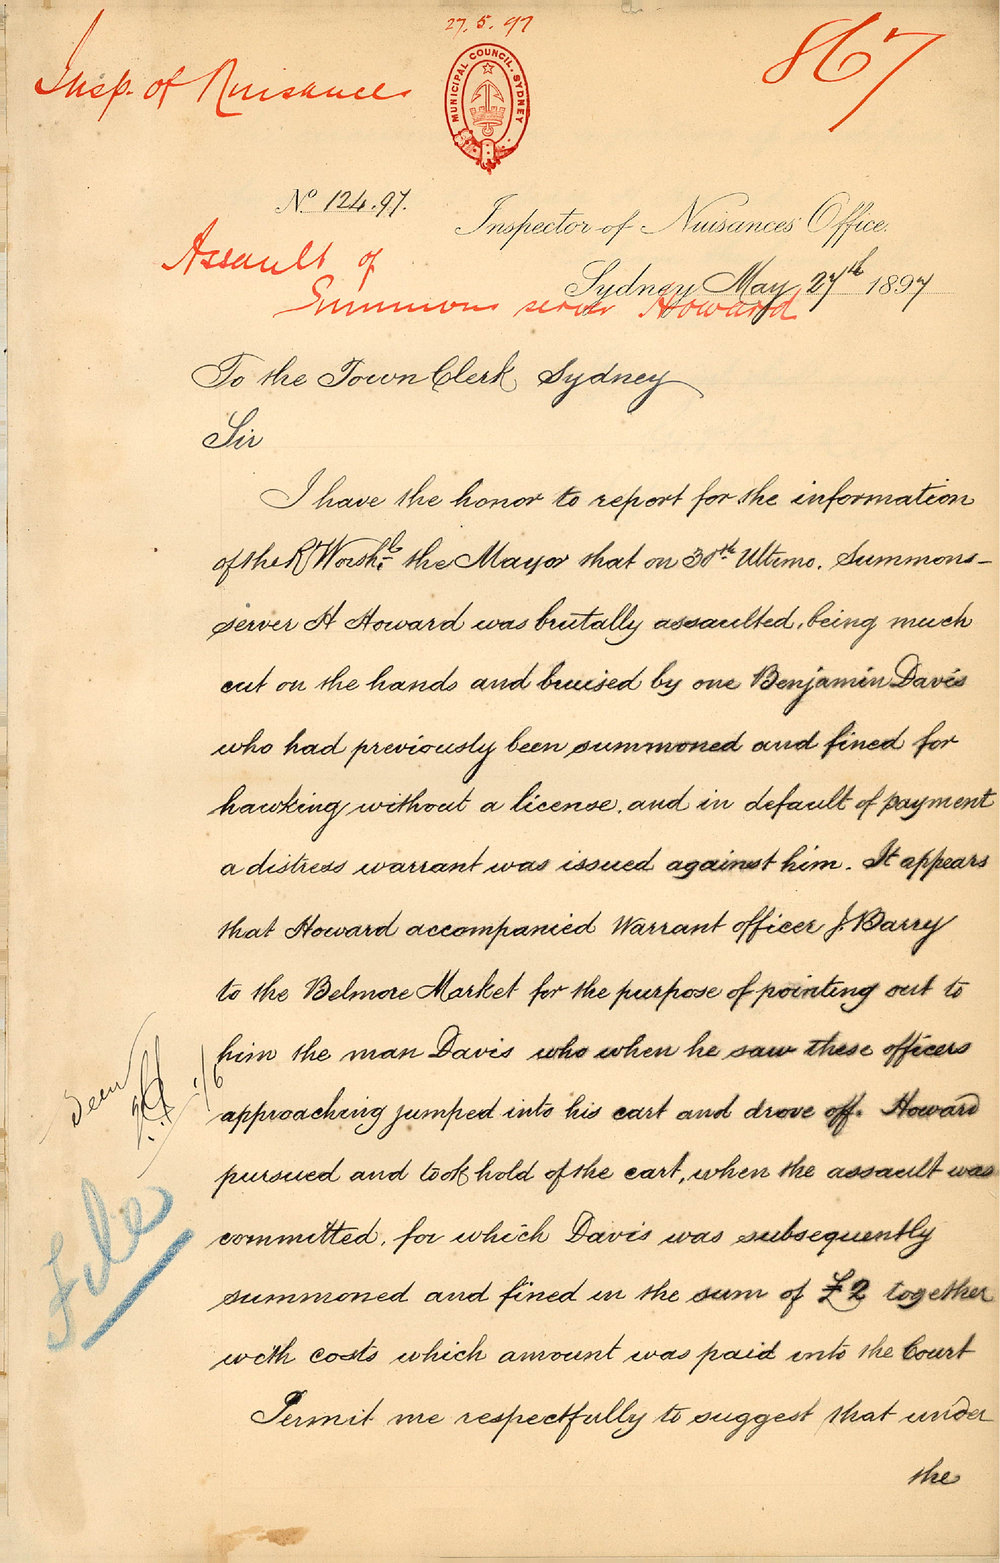 27.5.97
Insp. of Nuisances
867
MUNICIPAL COUNCIL. SYDNEY
No. 124.97.
Inspector of Nuisances Office.
Assault of
Sydney May 27th 1897
Summons server Howard
To the Town Clerk Sydney
Sir
I have the honor to report for the information
of the R Worshl. the Mayor that on 30th Ultimo. Summons-
server H Howard was brutally assaulted, being much
cut on the hands and bruised by one Benjamin Davis
who had previously been summoned and fined for
hawking without a license, and in default of payment
a distress warrant was issued against him. It appears
that Howard accompanied Warrant officer J. Barry
to the Belmore Market for the purpose of pointing out to
him the man Davis who when he saw these officers
approaching jumped into his cart and drove off. Howard
pursued and took hold of the cart, when the assault was
committed, for which Davis was subsequently
summoned and fined in the sum of £2 together
with costs which amount was paid into the Court
Permit me respectfully to suggest that under
the
Seen
File